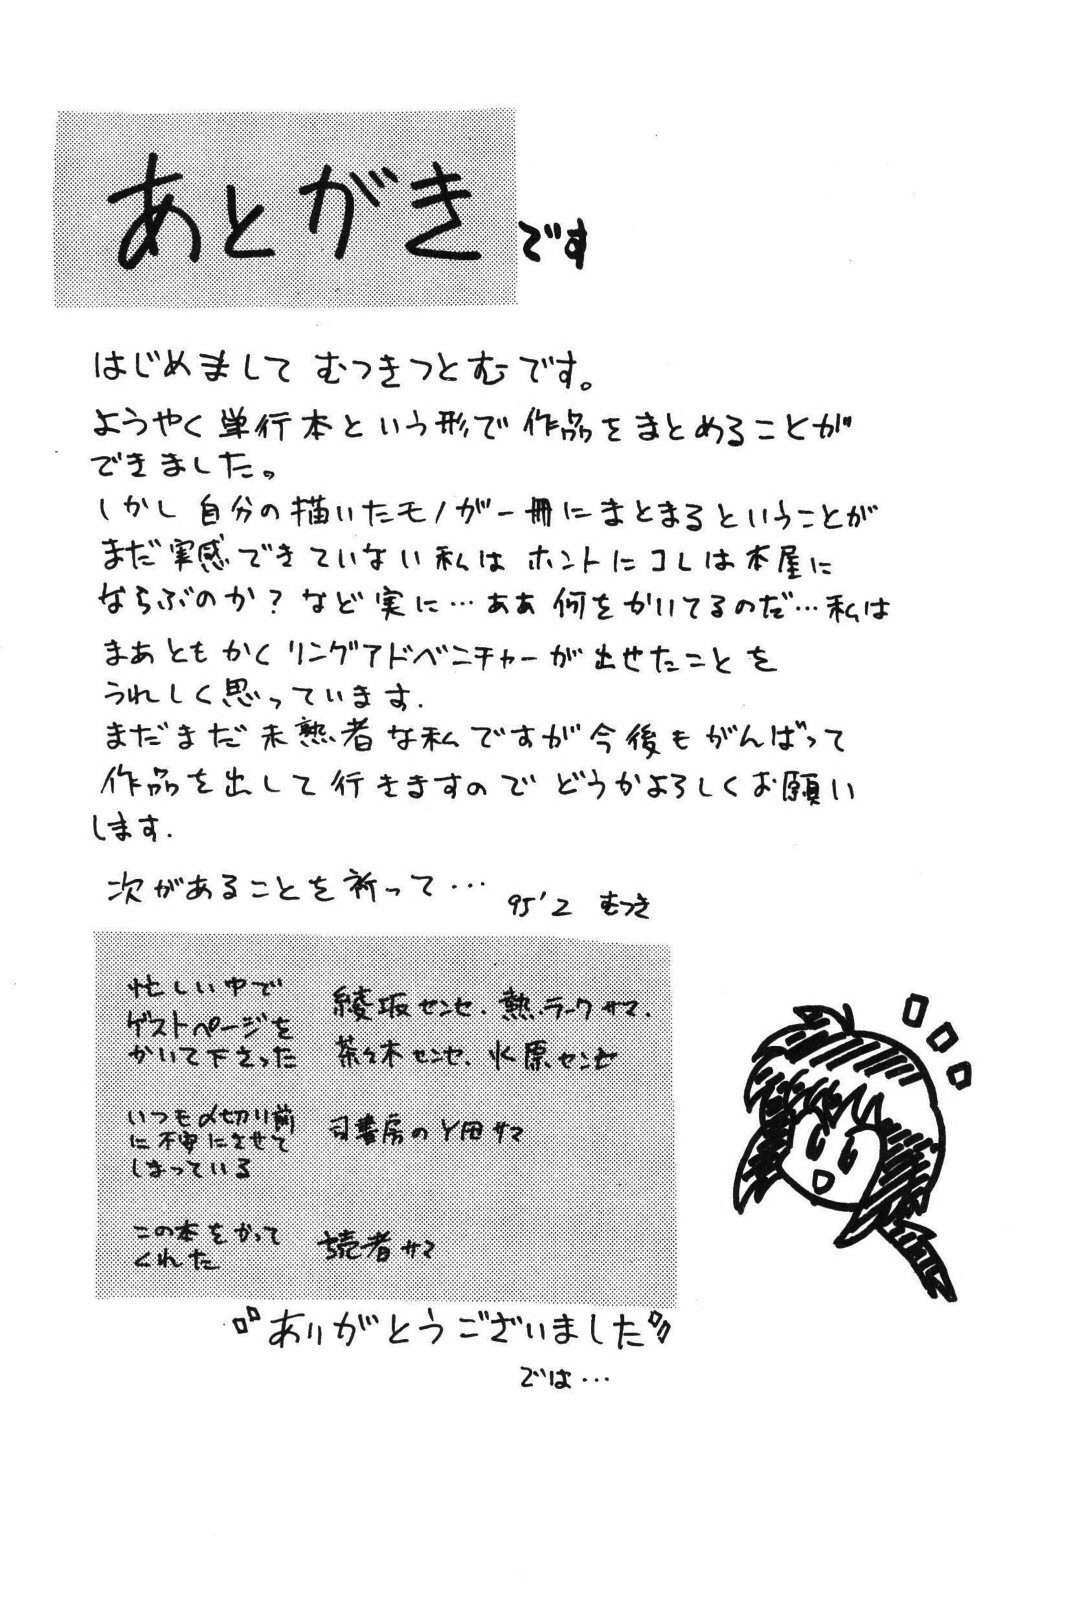 あとがきです
はじめまして むつきつとむです。
ようやく単行本という形で作品をまとめることが
できました。
しかし自分の描いたモノが一冊にまとまるということが
まだ実感できていない私は ホントにコレは本屋に
ならぶのか?など実に…ああ何をかいてるのだ…私は
まあともかくリングアドベニチャーが出せたことを
うれしく思っています.
まだまだ未熟者な私ですが今後もがんばって
作品を出して行きますので どうかよろしくお願い
します.
次があることを祈って…
95'2 むつき
忙しい中で
ゲストページを
かいて下さった
綾坂センセ、熱.ラークサマ、
茶々木センセ、水原センセ
いつも〆切り前
に不安にさせて
しまっている
司書房のY田サマ
この本をかって
くれた
読者サマ
ありがとうございました
では…